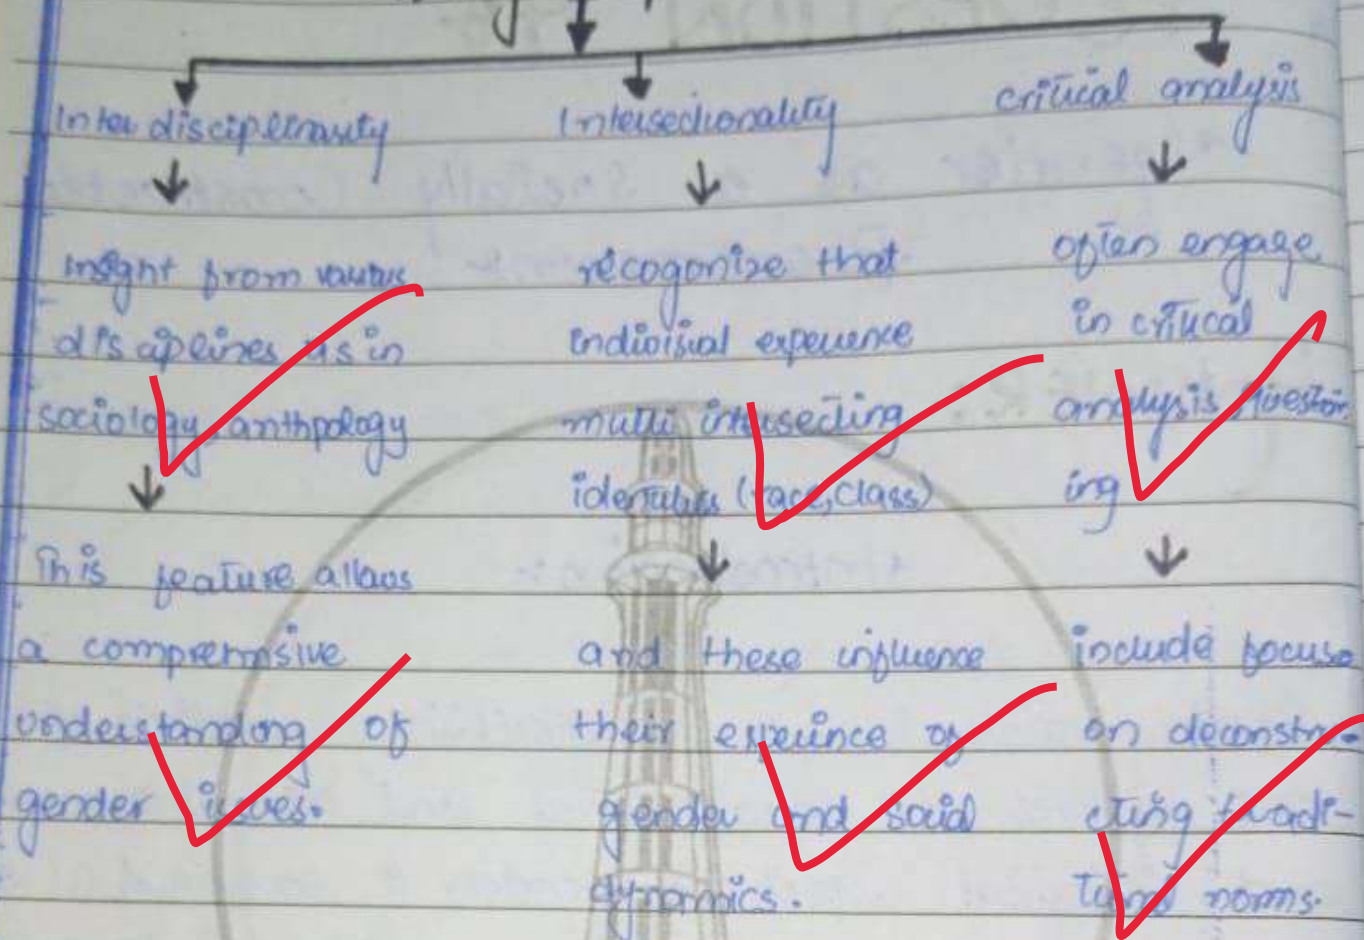 Interdisciplinarity
Intersectionality
critical analysis
insight from various
disciplines as in
sociology, anthpology
This feature allows
a comprehensive
understanding of
gender issues.
recogonize that
individual experience
multi intersecting
identities (race, class)
and these influence
their experince of
gender and social
dynamics.
often engage
in critical
analysis, question
ing
include focuse
on deconstru-
cting tradi-
tional norms.